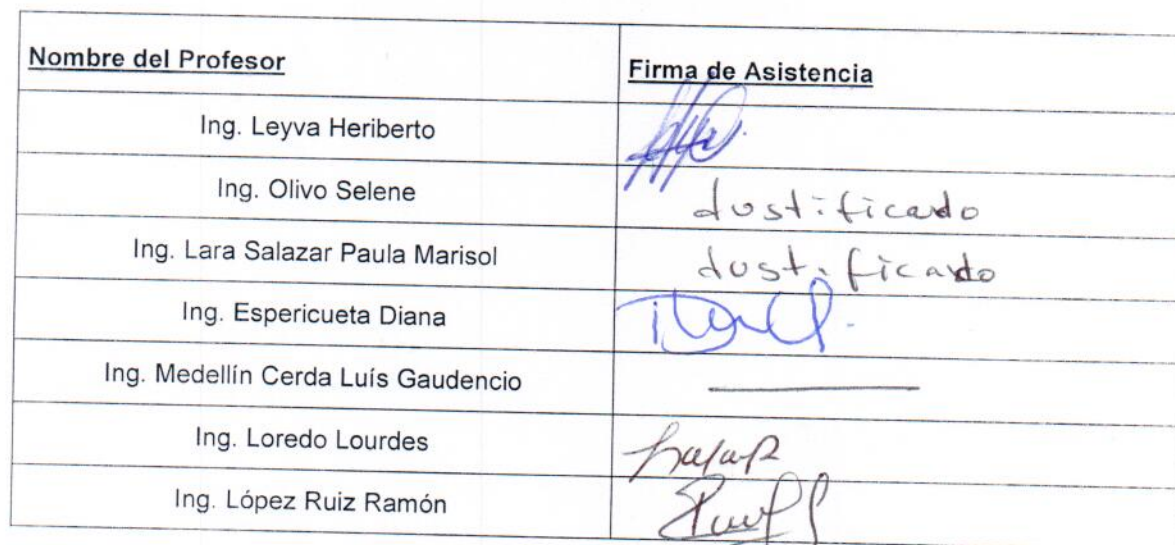 Nombre del Profesor Firma de Asistencia
Ing. Leyva Heriberto
Ing. Olivo Selene Justificado
Ing. Lara Salazar Paula Marisol Justificado
Ing. Espericueta Diana
Ing. Medellín Cerda Luís Gaudencio
Ing. Loredo Lourdes
Ing. López Ruiz Ramón